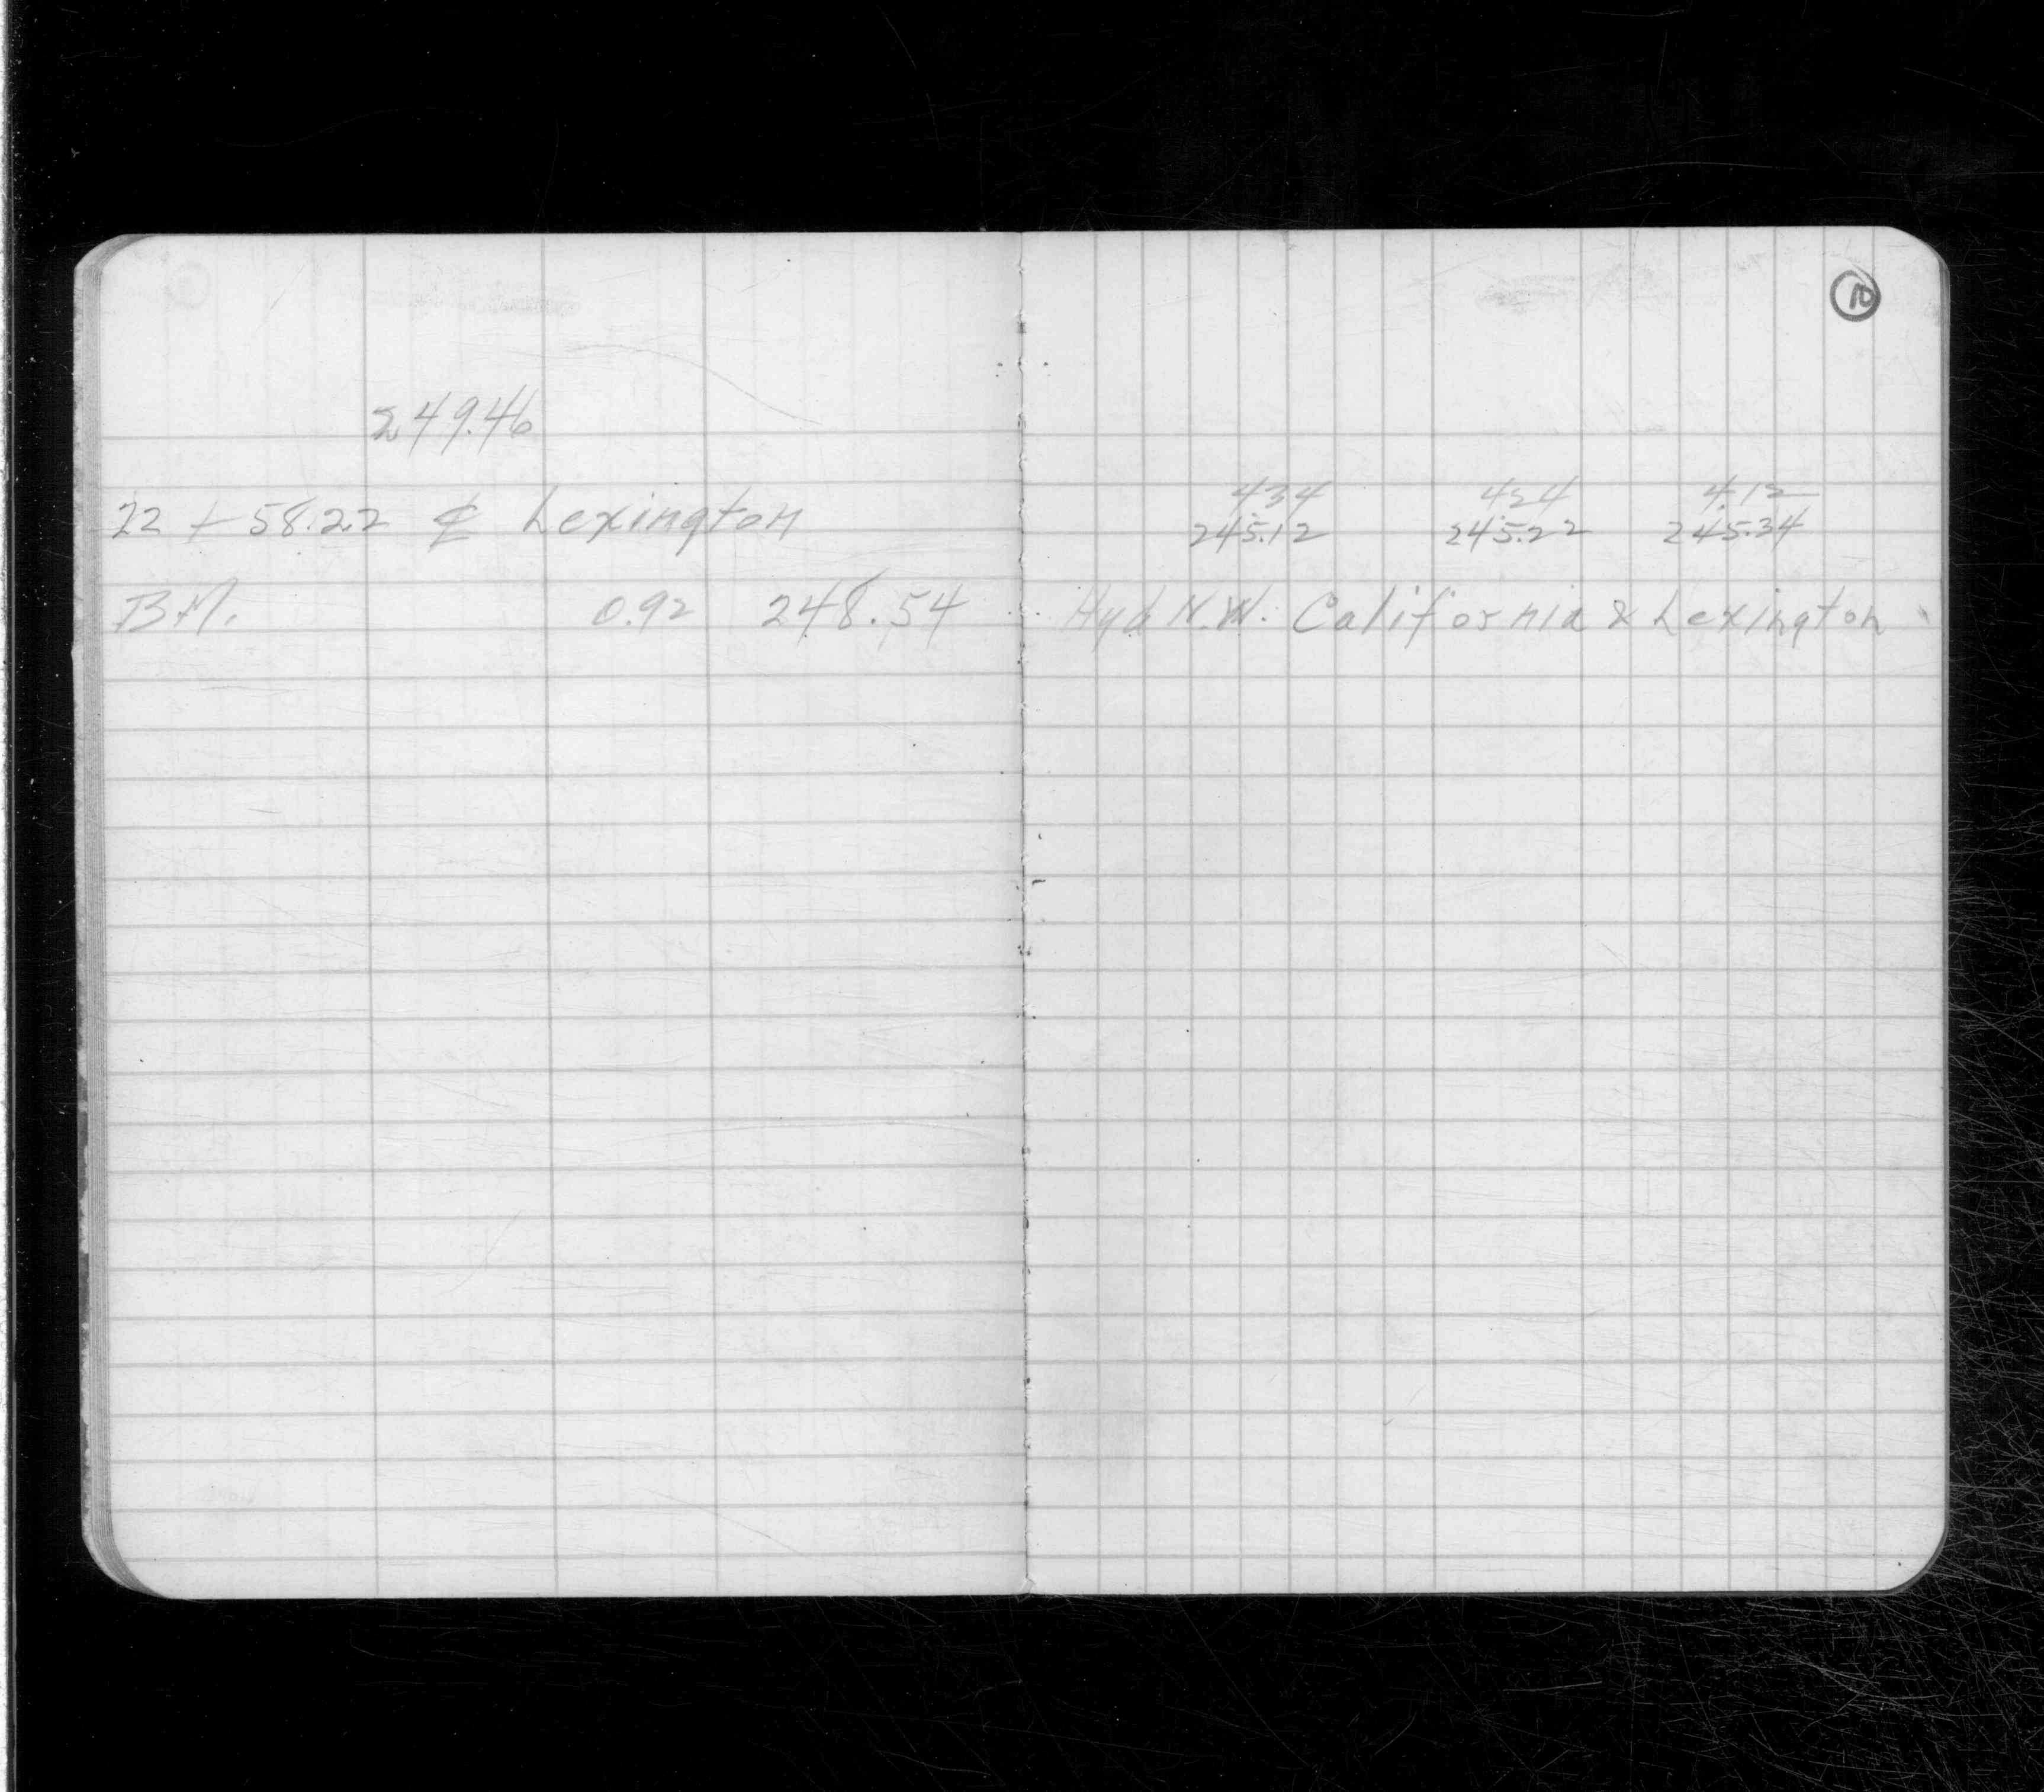 249.46
22 + 58.22 ℄ Lexington
B.M. 0.92 248.54
12
4.34 4.24 4.12
245.12 245.22 245.34
Hyd N.W. California & Lexington